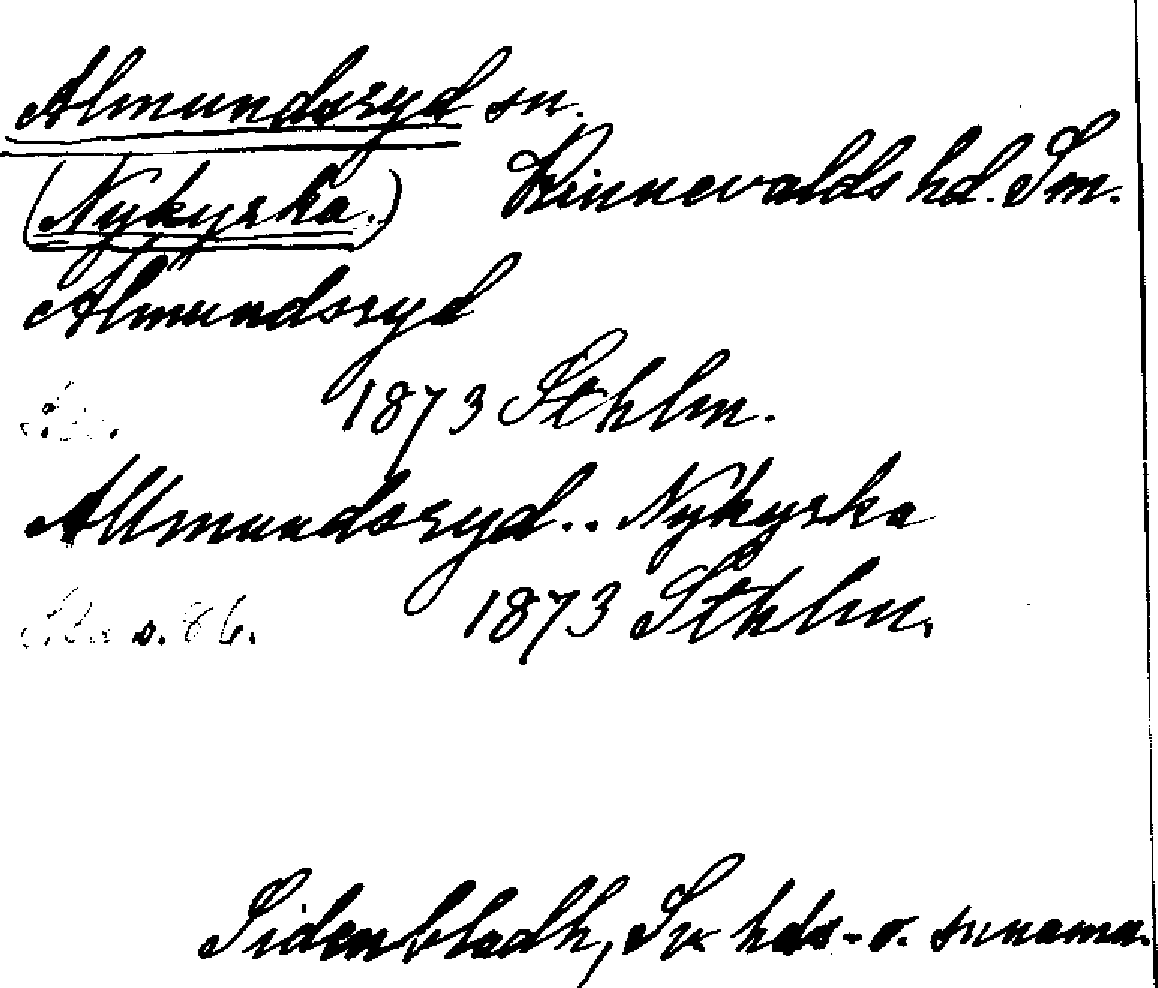 Almundsryd sn.
(Nykyrka.) Kinnevalds hd. Sm.
Almundsryd
1873 Sthlm.
Allmundsryd.. Nykyrka
s. 86. 1873 Sthlm.
Sidenbladh, Sv hds- o. snnamn.